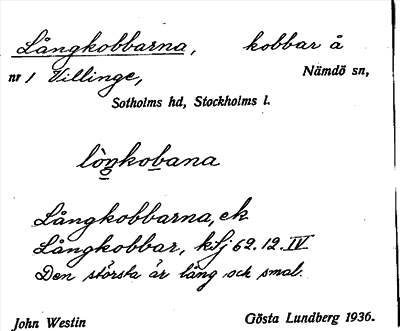 Långkobbarna, kobbar å
nr 1 Villinge, Nämdö sn,
Sotholms hd, Stockholms l.
lòŋkobana
Långkobbarna, ek
Långkobbar, kfj 62.12.IV
Den största är lång och smal.
John Westin Gösta Lundberg 1936.